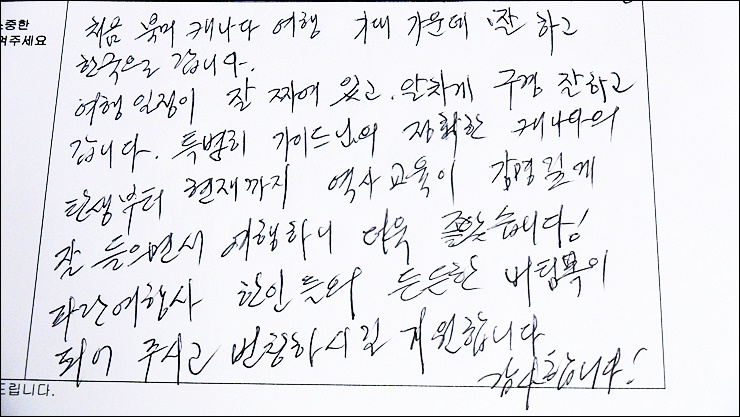 소중한
겨주세요
처음 북미 캐나다 여행 기대 가운데 잘 하고
한국으로 갑니다.
여행 일정이 잘 짜여 있고. 알차게 구경 잘하고
갑니다. 특별히 가이드님의 정확한 캐나다의
탄생부터 현재까지 역사교육이 감명깊게
잘 들으면서 여행하니 더욱 즐겁습니다!
파란여행사 한인들의 든든한 버팀목이
되어 주시고 번창하시길 기원합니다
감사합니다!
드립니다.